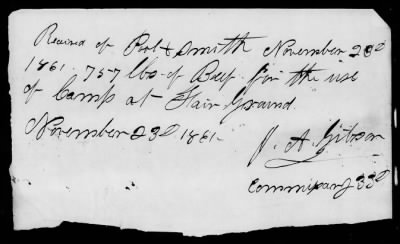 Received of Pool & Smith November 23d
1861. 757 lbs of Beef for the use
of Camp at Fair Ground.
November 23d 1861.
J. A. Gibson
Commissary 33d